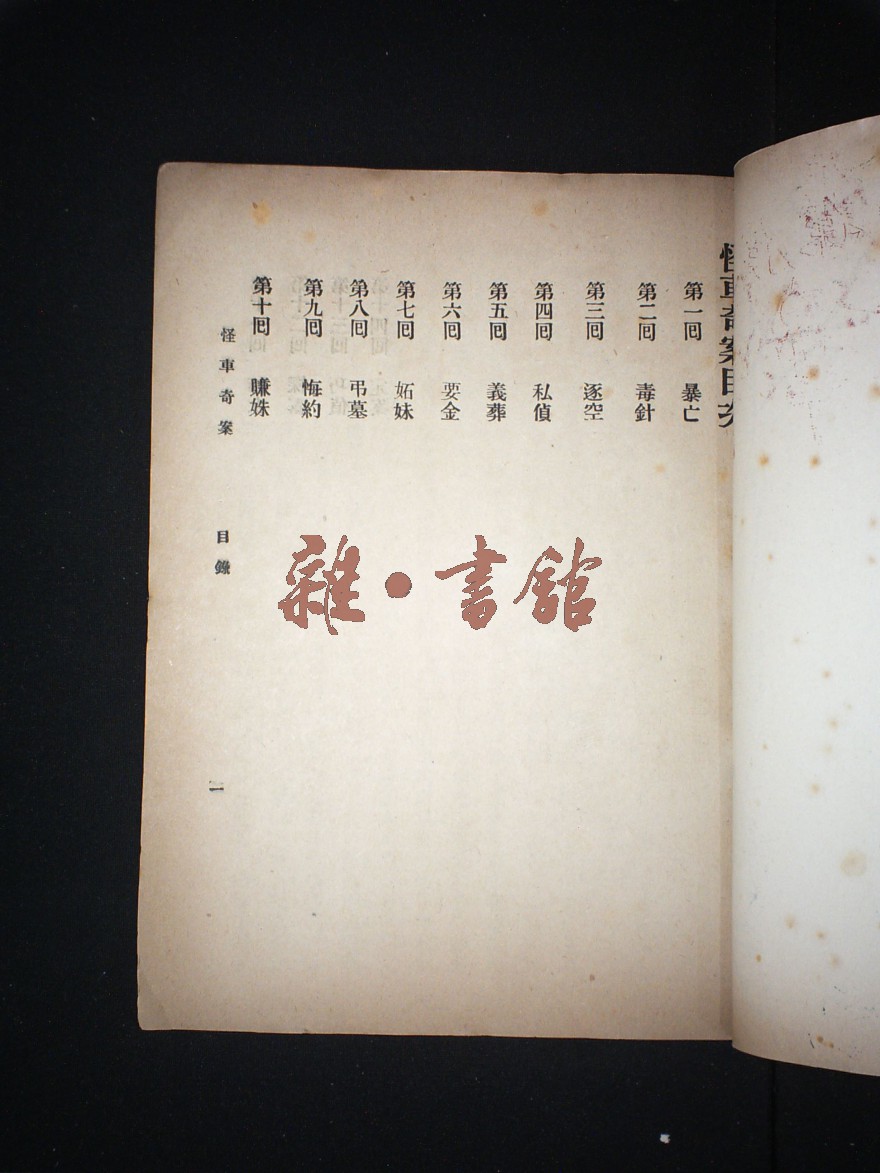 怪車奇案目次
第一囘　暴亡
第二囘　毒針
第三囘　逐空
第四囘　私偵
第五囘　義葬
第六囘　要金
第七囘　妬妹
第八囘　弔墓
第九囘　悔約
第十囘　賺姝
怪車奇案　目錄　一
雜·書館